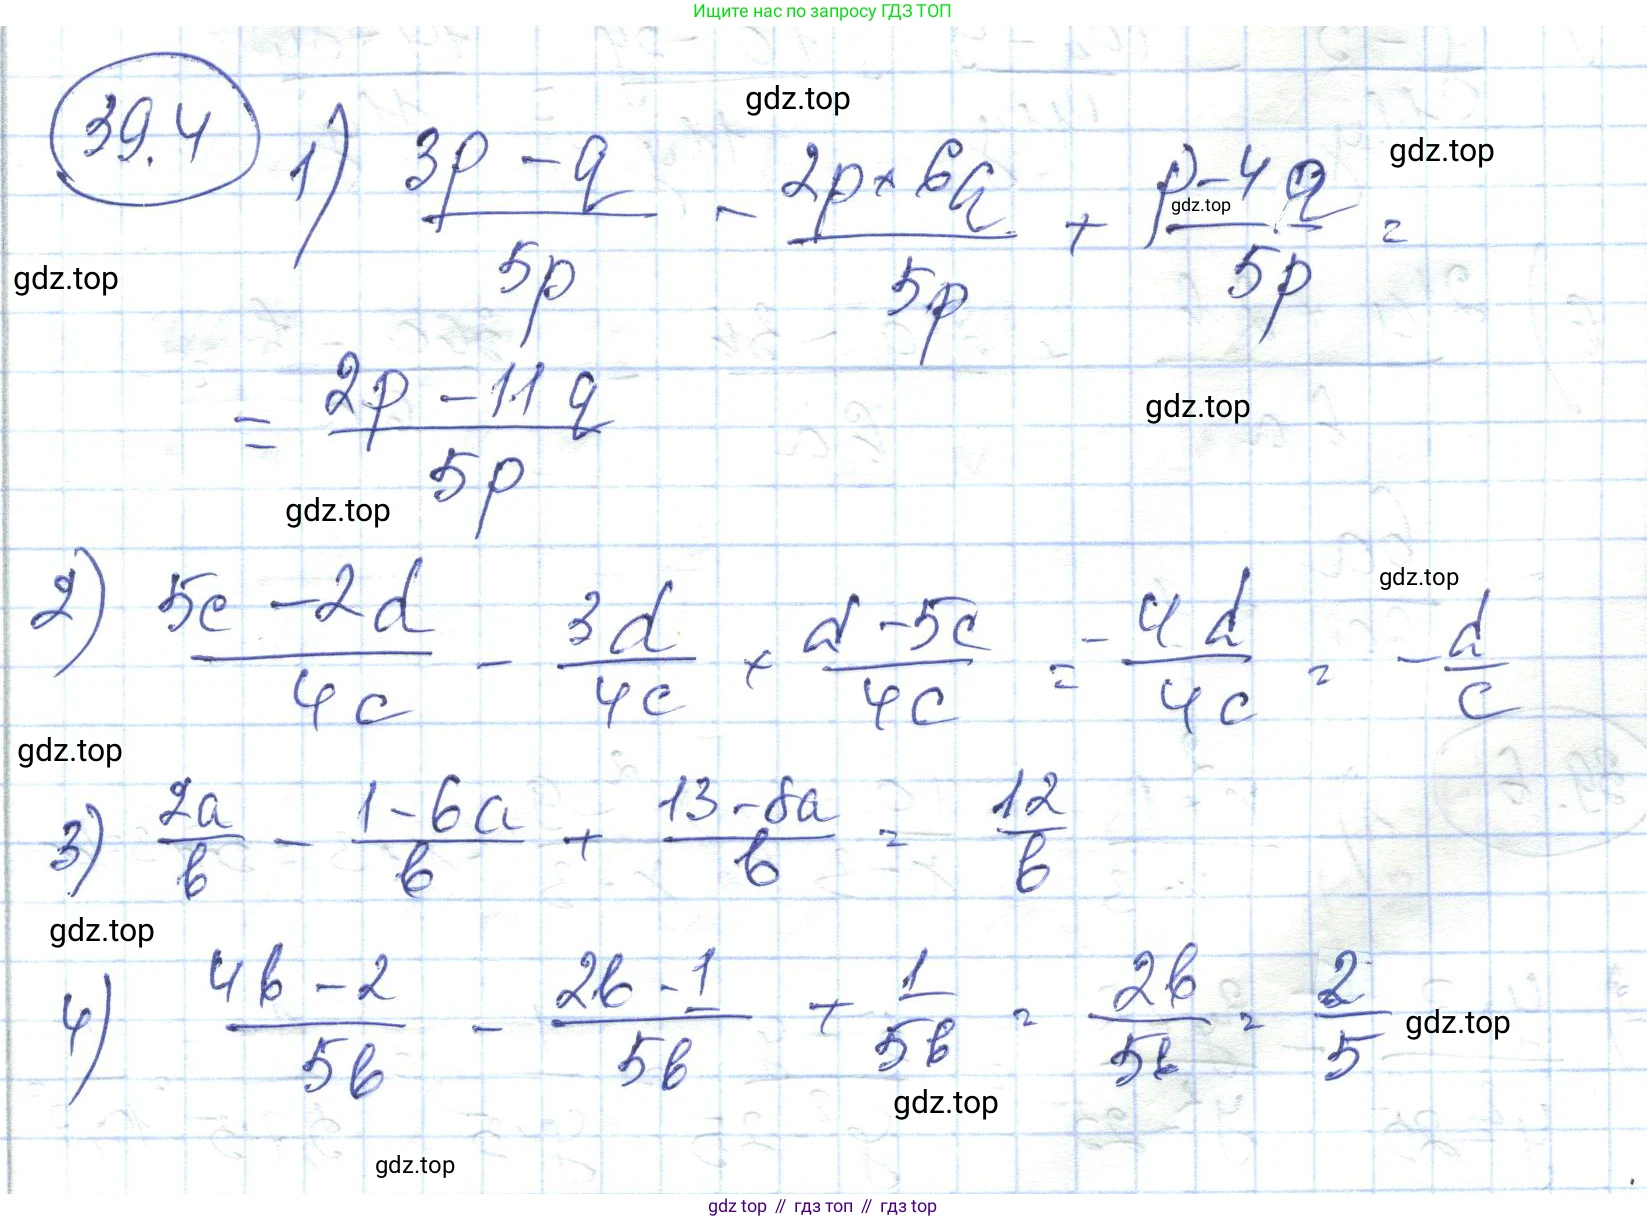 Ищите нас по запросу ГДЗ ТОП
39.4
1) (3p - q)/(5p) - (2p + 6q)/(5p) + (p - 4q)/(5p) =
= (2p - 11q)/(5p)
2) (5c - 2d)/(4c) - (3d)/(4c) + (d - 5c)/(4c) = -(4d)/(4c) = -d/c
3) (2a)/b - (1 - 6a)/b + (13 - 8a)/b = 12/b
4) (4b - 2)/(5b) - (2b - 1)/(5b) + 1/(5b) = (2b)/(5b) = 2/5
gdz.top
gdz.top
gdz.top
gdz.top
gdz.top
gdz.top
gdz.top
gdz.top
gdz.top
gdz.top
gdz.top
gdz.top
gdz top // гдз топ // gdz top